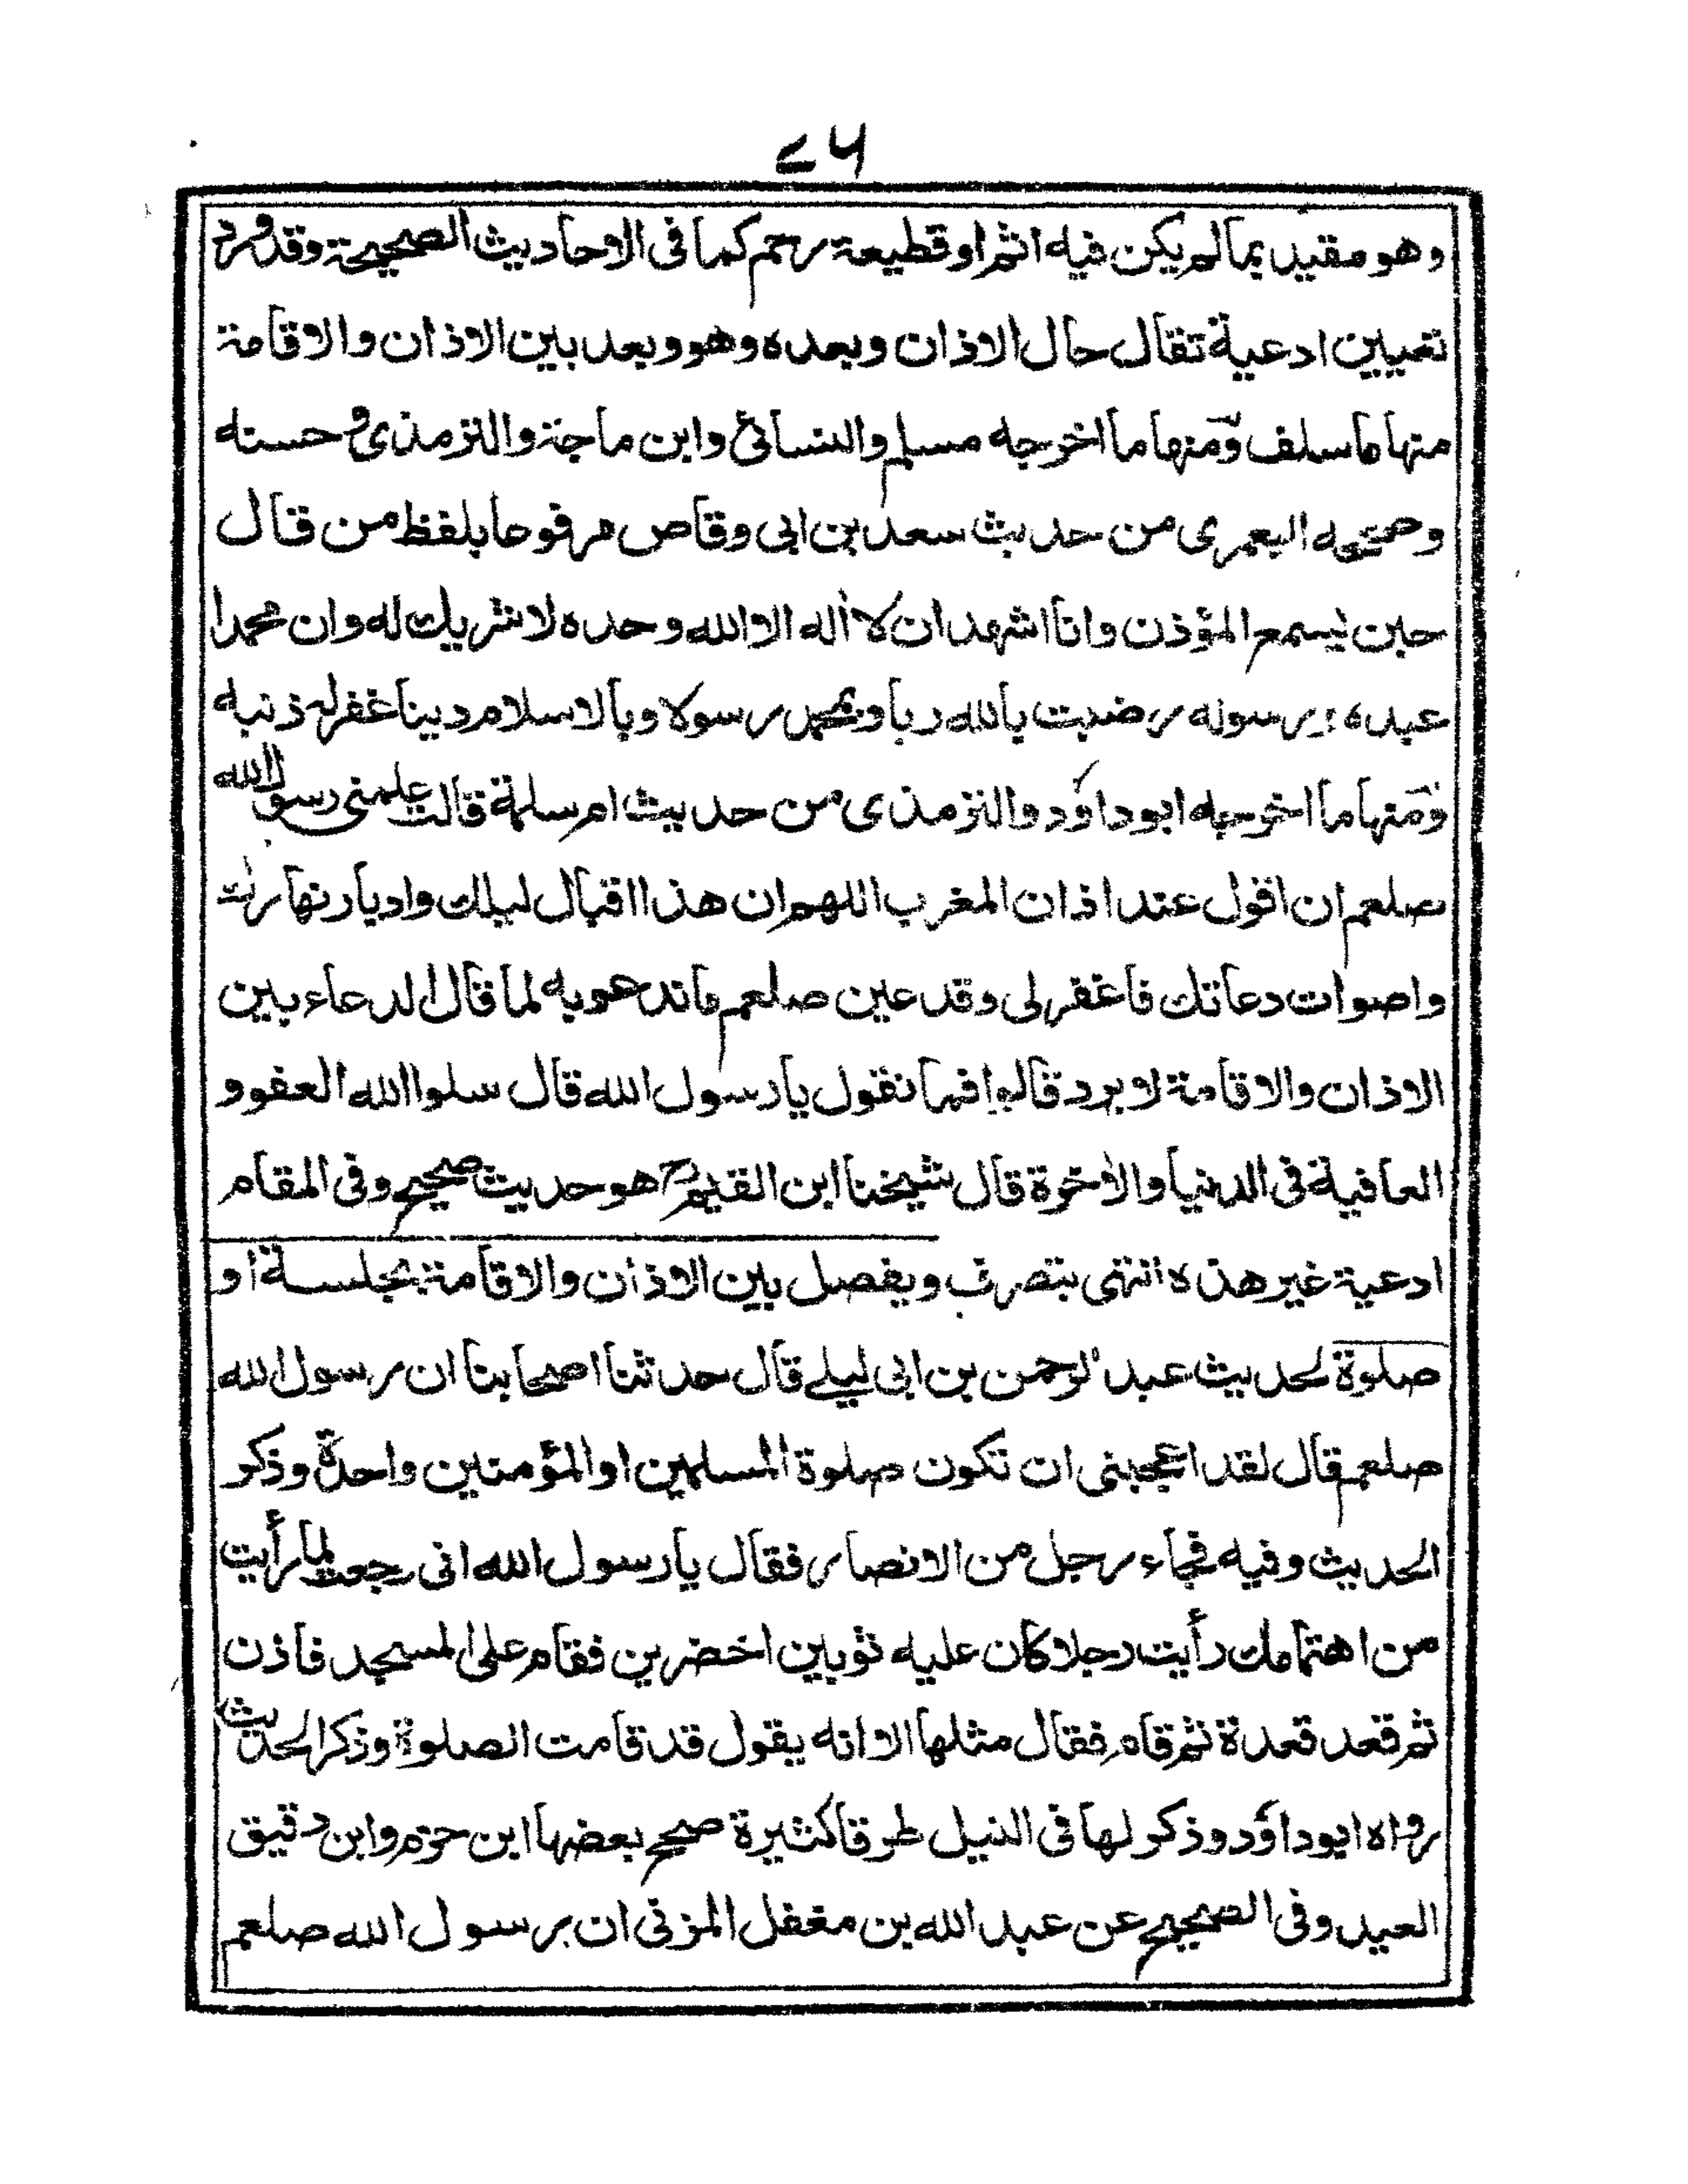 ٧٦
وهو مقيد بما لم يكن فيه اثم او قطيعة رحم كما فى الاحاديث الصحيحة وقد ورد
تعيين ادعية تقال حال الاذان وبعده وهو وبعد بين الاذان والاقامة
منها ما سلف ومنها ما اخرجه مسلم والنسائى وابن ماجة والترمذى وحسنه
وصححه اليعمرى من حديث سعد بن ابى وقاص مرفوعا بلفظ من قال
حين يسمع المؤذن وانا اشهد ان لا اله الا الله وحده لا شريك له وان محمدا
عبده ورسوله رضيت بالله ربا وبمحمد رسولا وبالاسلام دينا غفر له ذنبه
ومنها ما اخرجه ابو داؤد والترمذى من حديث ام سلمة قالت علمنى رسول الله
صلعم ان اقول عند اذان المغرب اللهم ان هذا اقبال ليلك وادبار نهارك
واصوات دعاتك فاغفر لى وقد عين صلعم ما ندعو به لما قال الدعاء بين
الاذان والاقامة لا يرد قالوا فما نقول يا رسول الله قال سلوا الله العفو و
العافية فى الدنيا والاخرة قال شيخنا ابن القيم رح هو حديث صحيح وفى المقام
ادعية غير هذه انتهى بتصرف ويفصل بين الاذان والاقامة بجلسة او
صلوة لحديث عبد الرحمن بن ابى ليلے قال حدثنا اصحابنا ان رسول الله
صلعم قال لقد اعجبنى ان تكون صلوة المسلمين او المؤمنين واحدة وذكر
الحديث وفيه فجاء رجل من الانصار فقال يا رسول الله انى رجعت لما رأيت
من اهتمامك رأيت رجلا كان عليه ثوبين اخضرين فقام على المسجد فاذن
ثم قعد قعدة ثم قام فقال مثلها الا انه يقول قد قامت الصلوة وذكر الحديث
رواه ابو داؤد وذكر لها فى النيل طرقا كثيرة صحح بعضها ابن حزم وابن دقيق
العيد وفى الصحيح عن عبد الله بن مغفل المزنى ان رسول الله صلعم